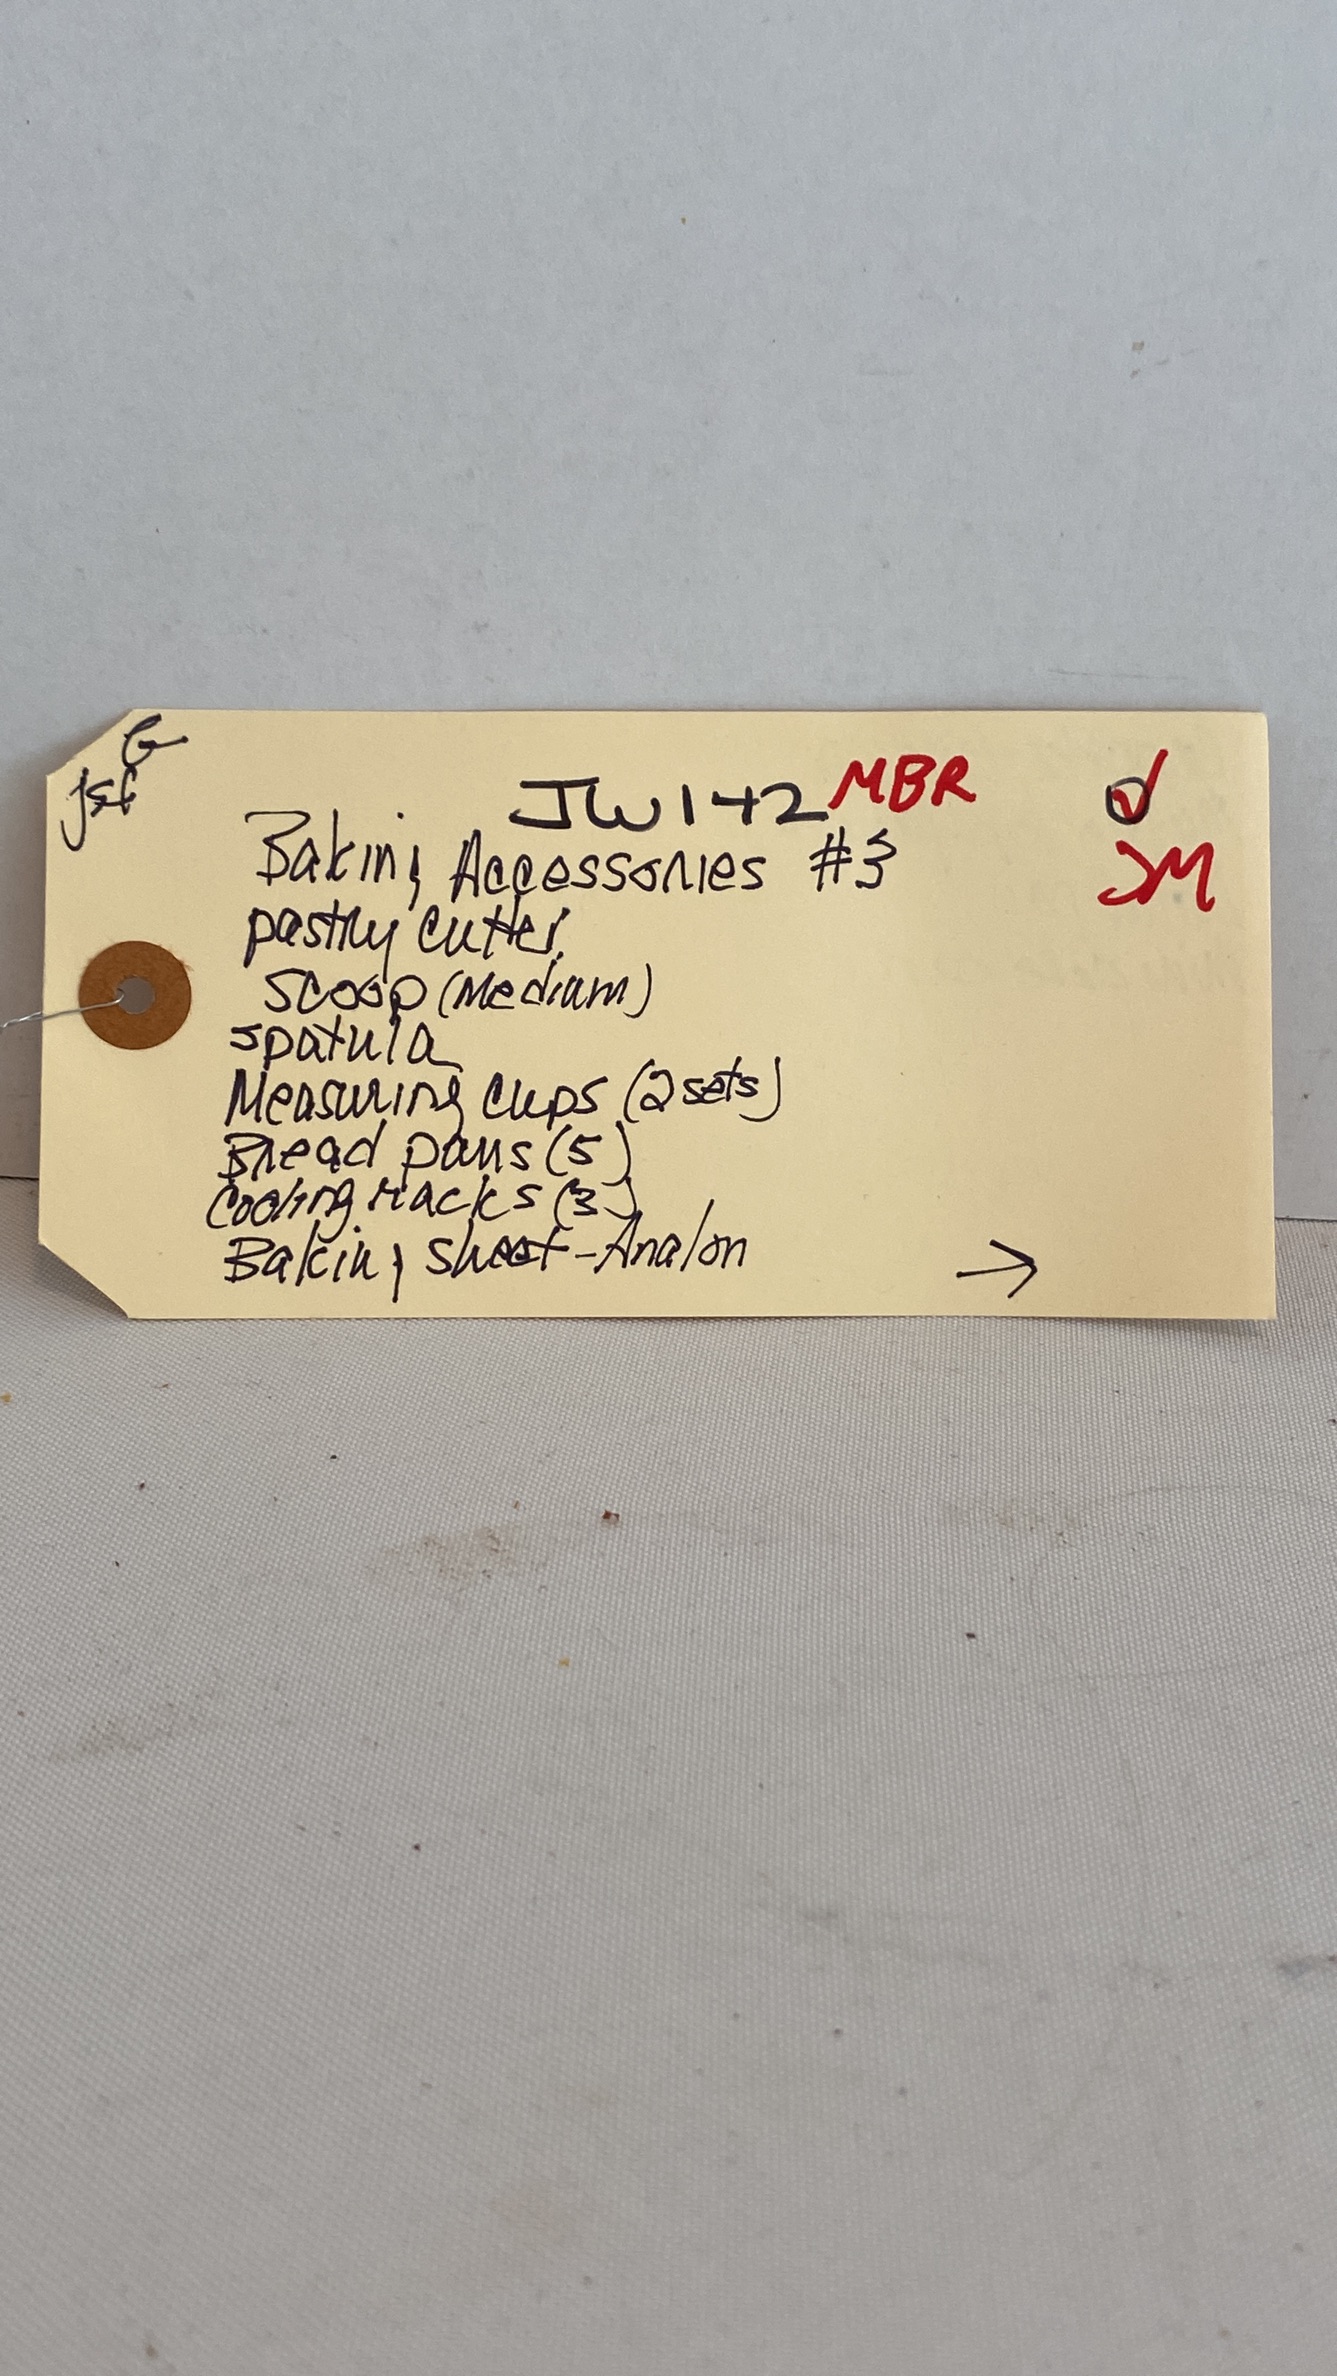 G
jsf
JW142 MBR
JM
Baking Accessories #3
pastry cutter
Scoop (Medium)
spatula
Measuring cups (2 sets)
Bread pans (5)
Cooling racks (3)
Baking sheet - Analon